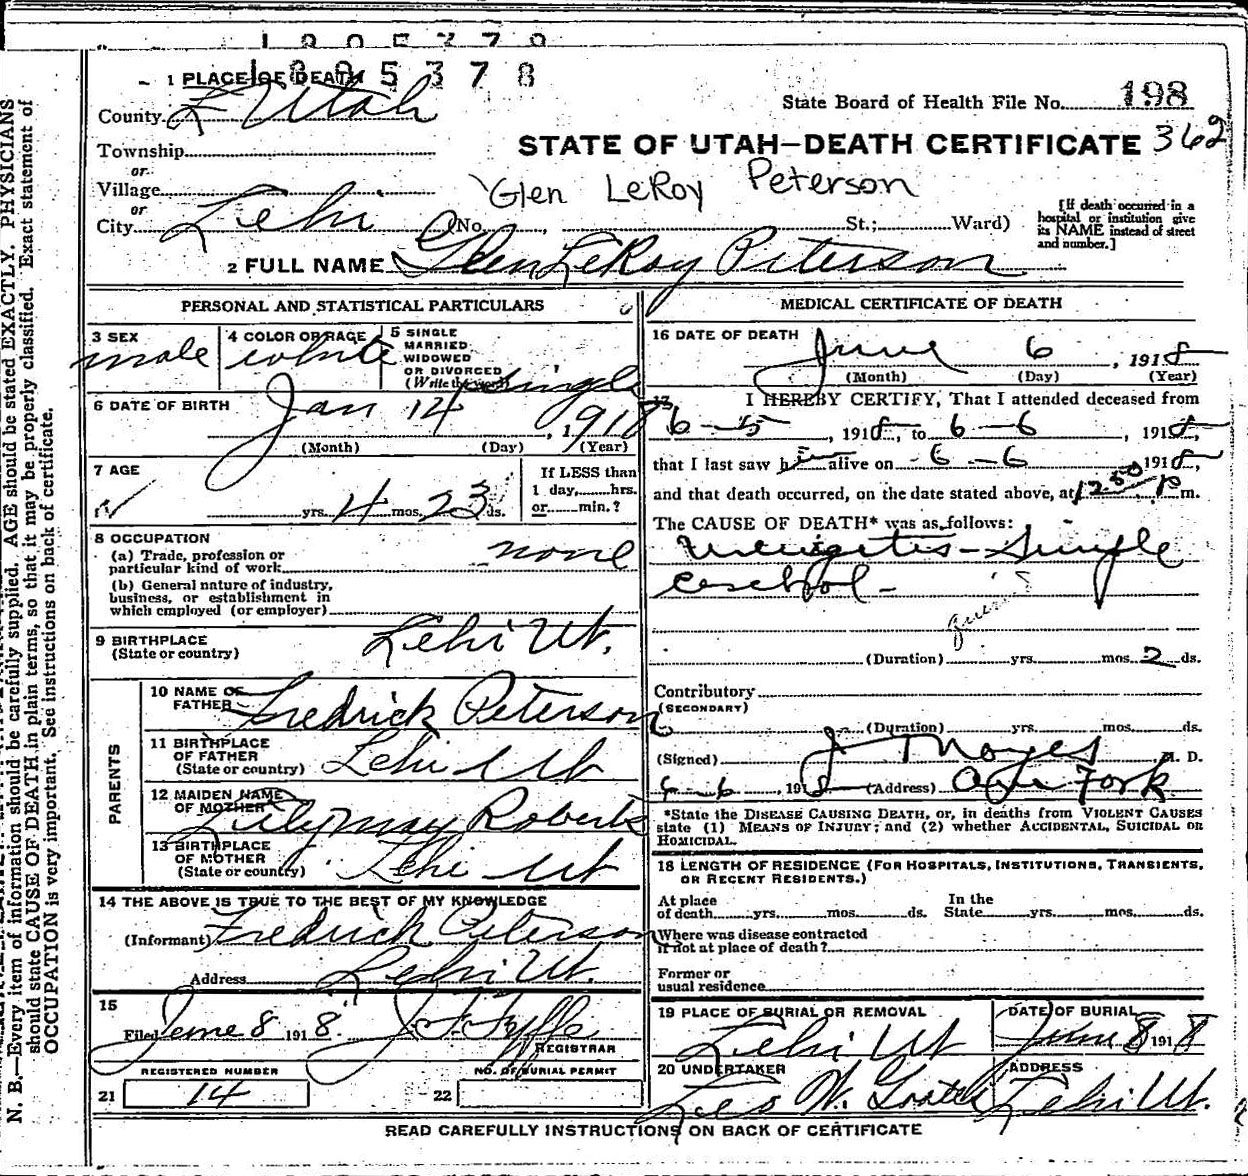 1805378
1 PLACE OF DEATH
County Utah
State Board of Health File No. 198
STATE OF UTAH—DEATH CERTIFICATE 362
Township
or
Village
or
City Lehi
Glen LeRoy Peterson
(No. , St.; Ward)
[If death occurred in a hospital or institution give its NAME instead of street and number.]
2 FULL NAME Glen LeRoy Peterson
PERSONAL AND STATISTICAL PARTICULARS
3 SEX male
4 COLOR OR RACE white
5 SINGLE
MARRIED
WIDOWED
OR DIVORCED
(Write the word) single
6 DATE OF BIRTH Jan 14, 1918
(Month) (Day) (Year)
7 AGE
yrs. 4 mos. 23 ds.
If LESS than
1 day, hrs.
or min.?
8 OCCUPATION
(a) Trade, profession or
particular kind of work none
(b) General nature of industry,
business, or establishment in
which employed (or employer)
9 BIRTHPLACE
(State or country) Lehi Ut.
PARENTS
10 NAME OF
FATHER Fredrick Peterson
11 BIRTHPLACE
OF FATHER
(State or country) Lehi Ut
12 MAIDEN NAME
OF MOTHER Lily May Roberts
13 BIRTHPLACE
OF MOTHER
(State or country) Lehi Ut
14 THE ABOVE IS TRUE TO THE BEST OF MY KNOWLEDGE
(Informant) Fredrick Peterson
Address Lehi Ut.
15
Filed June 8 1918.
REGISTRAR
REGISTERED NUMBER
21 14
NO. OF BURIAL PERMIT
22
MEDICAL CERTIFICATE OF DEATH
16 DATE OF DEATH
June 6, 1918
(Month) (Day) (Year)
I HEREBY CERTIFY, That I attended deceased from
6-5, 1918, to 6-6, 1918,
that I last saw him alive on 6-6 1918,
and that death occurred, on the date stated above, at 12.50 P m.
The CAUSE OF DEATH* was as follows:
Simple
(Duration) yrs. mos. 2 ds.
Contributory
(SECONDARY)
(Duration) yrs. mos. ds.
(Signed) J Noyes M. D.
6-6, 1918 (Address) Am Fork
*State the DISEASE CAUSING DEATH, or, in deaths from VIOLENT CAUSES
state (1) MEANS OF INJURY; and (2) whether ACCIDENTAL, SUICIDAL OR
HOMICIDAL.
18 LENGTH OF RESIDENCE (FOR HOSPITALS, INSTITUTIONS, TRANSIENTS,
OR RECENT RESIDENTS.)
At place
of death yrs. mos. ds.
In the
State yrs. mos. ds.
Where was disease contracted
if not at place of death?
Former or
usual residence
19 PLACE OF BURIAL OR REMOVAL
Lehi Ut
DATE OF BURIAL
June 8 1918
20 UNDERTAKER
ADDRESS
Lehi Ut.
READ CAREFULLY INSTRUCTIONS ON BACK OF CERTIFICATE
N. B.—Every item of information should be carefully supplied. AGE should be stated EXACTLY. PHYSICIANS
should state CAUSE OF DEATH in plain terms, so that it may be properly classified. Exact statement of
OCCUPATION is very important. See instructions on back of certificate.